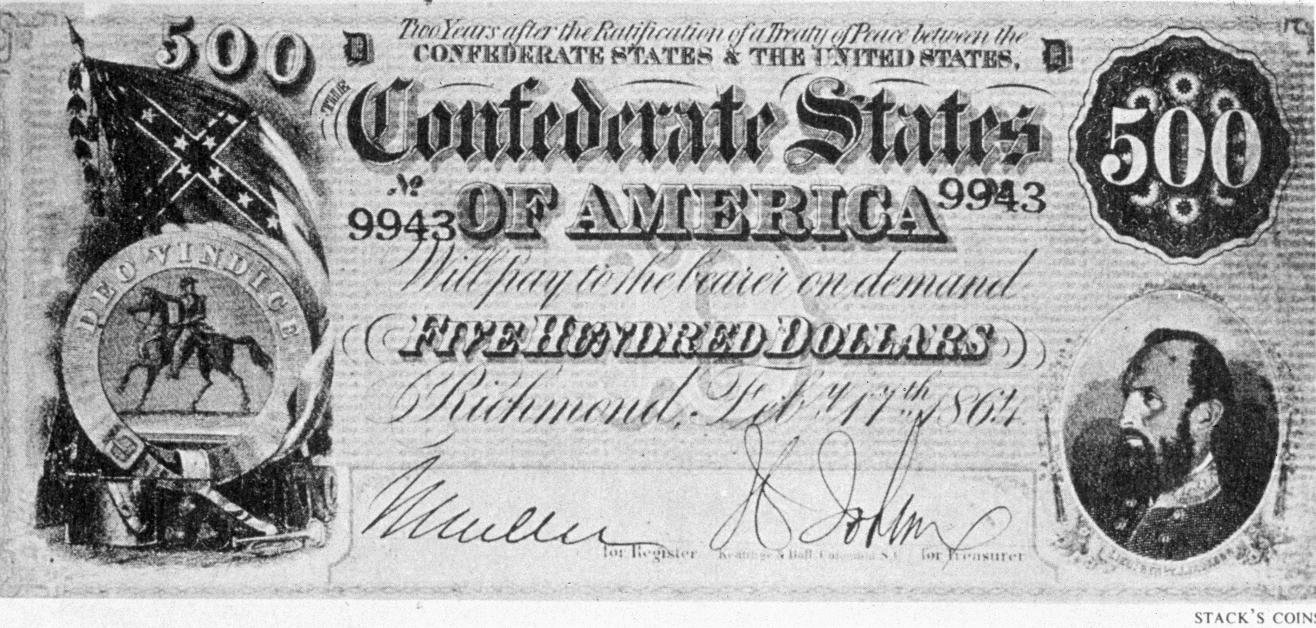 500
D
Two Years after the Ratification of a Treaty of Peace between the
CONFEDERATE STATES & THE UNITED STATES,
D
THE
Confederate States
500
No
9943
OF AMERICA
9943
DEO VINDICE
Will pay to the bearer on demand
FIVE HUNDRED DOLLARS
Richmond, Feby. 17th 1864
for Register
Keatinge & Ball, Columbia S.C.
for Treasurer
STACK'S COINS